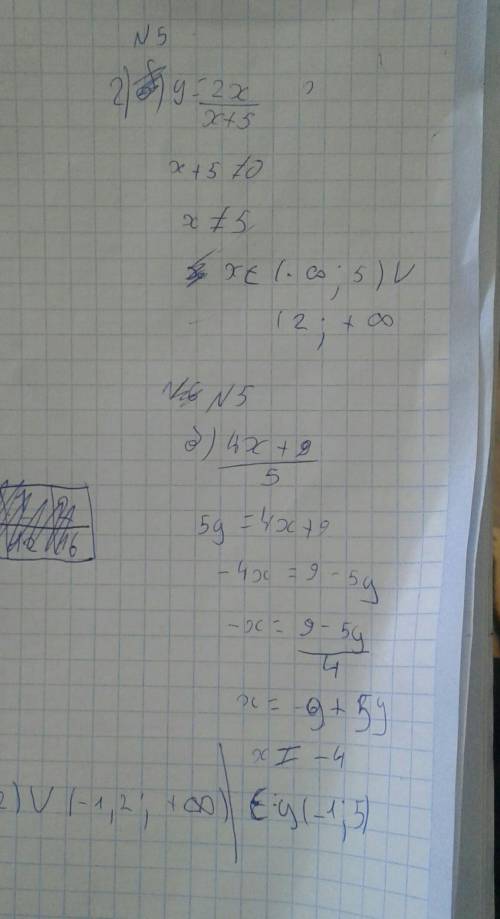 N5
2) y = 2x / x+5
x+5 ≠ 0
x ≠ 5
x ∈ (-∞; 5) V
(2; +∞
N5
б) 4x + 9 / 5
5y = 4x+9
-4x = 9 - 5y
-x = 9 - 5y / 4
x = -9 + 5y
x I -4
2) V (-1,2; +∞)
∈ y (-1; 5)